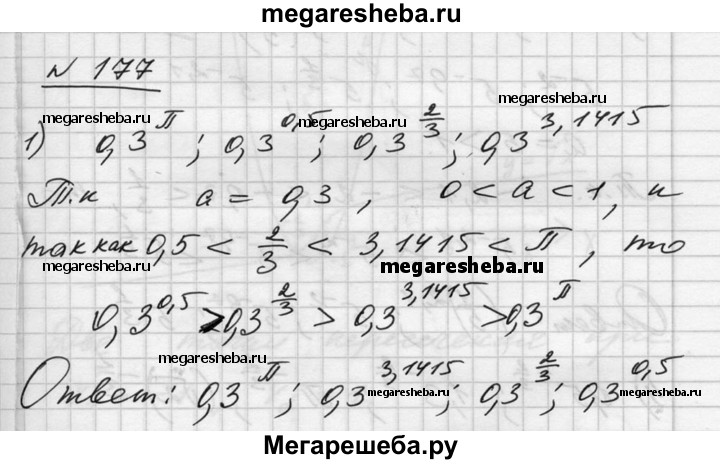 megaresheba.ru
№ 177
megaresheba.ru megaresheba.ru
1) 0,3^П ; 0,3^0,5 ; 0,3^2/3 ; 0,3^3,1415
megaresheba.ru
Т.к a = 0,3 , 0 < a < 1, и
так как 0,5 < 2/3 < 3,1415 < П , то
megaresheba.ru megaresheba.ru
0,3^0,5 > 0,3^2/3 > 0,3^3,1415 > 0,3^П
megaresheba.ru
Ответ: 0,3^П ; 0,3^3,1415 ; 0,3^2/3 ; 0,3^0,5
megaresheba.ru megaresheba.ru
Мегарешеба.ру